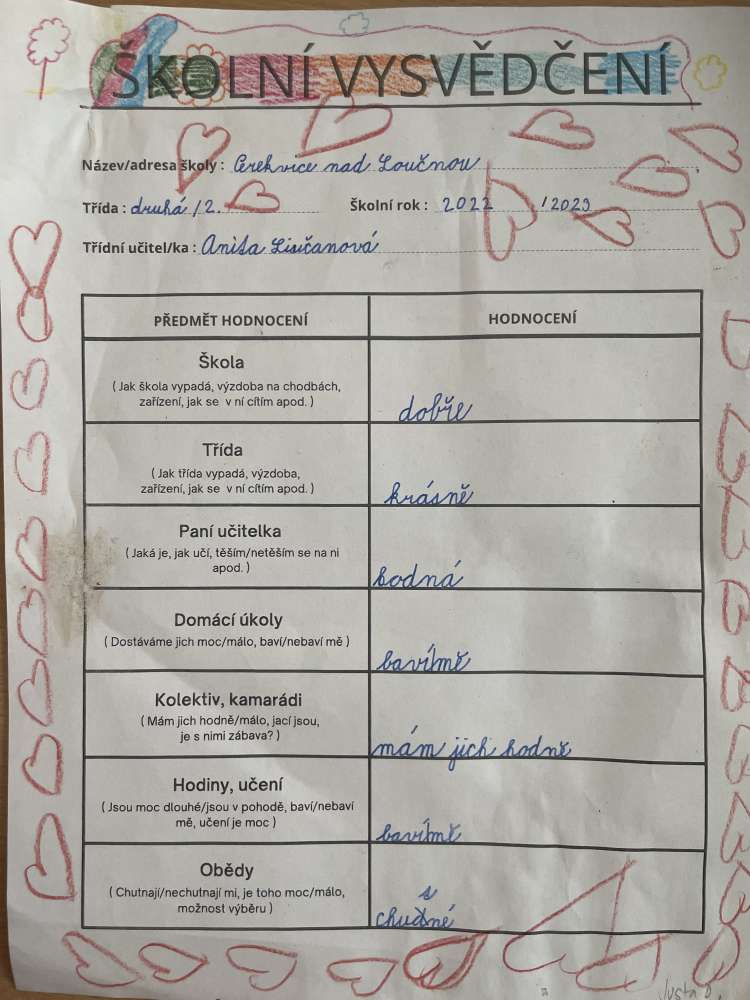 ŠKOLNÍ VYSVĚDČENÍ
Název/adresa školy : Cerekvice nad Loučnou
Třída : druhá / 2. Školní rok : 2022 / 2023
Třídní učitel/ka : Anita Lisičanová
PŘEDMĚT HODNOCENÍ HODNOCENÍ
Škola
( Jak škola vypadá, výzdoba na chodbách,
zařízení, jak se v ní cítím apod. )
dobře
Třída
( Jak třída vypadá, výzdoba,
zařízení, jak se v ní cítím apod. )
krásně
Paní učitelka
( Jaká je, jak učí, těším/netěším se na ni
apod. )
hodná
Domácí úkoly
( Dostáváme jich moc/málo, baví/nebaví mě )
bavímě
Kolektiv, kamarádi
( Mám jich hodně/málo, jací jsou,
je s nimi zábava? )
mám jich hodně
Hodiny, učení
( Jsou moc dlouhé/jsou v pohodě, baví/nebaví
mě, učení je moc )
bavímě
Obědy
( Chutnají/nechutnají mi, je toho moc/málo,
možnost výběru )
chudné